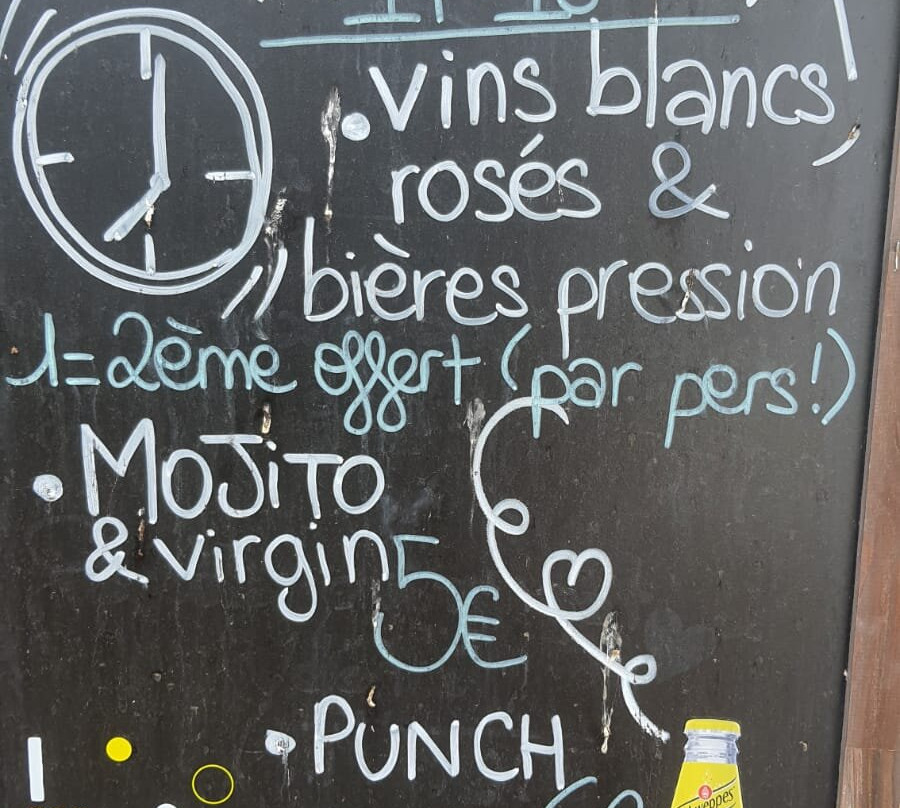 • vins blancs
rosés &
bières pression
1=2ème offert (par pers!)
• MOJiTO
& virgin 5€
• PUNCH